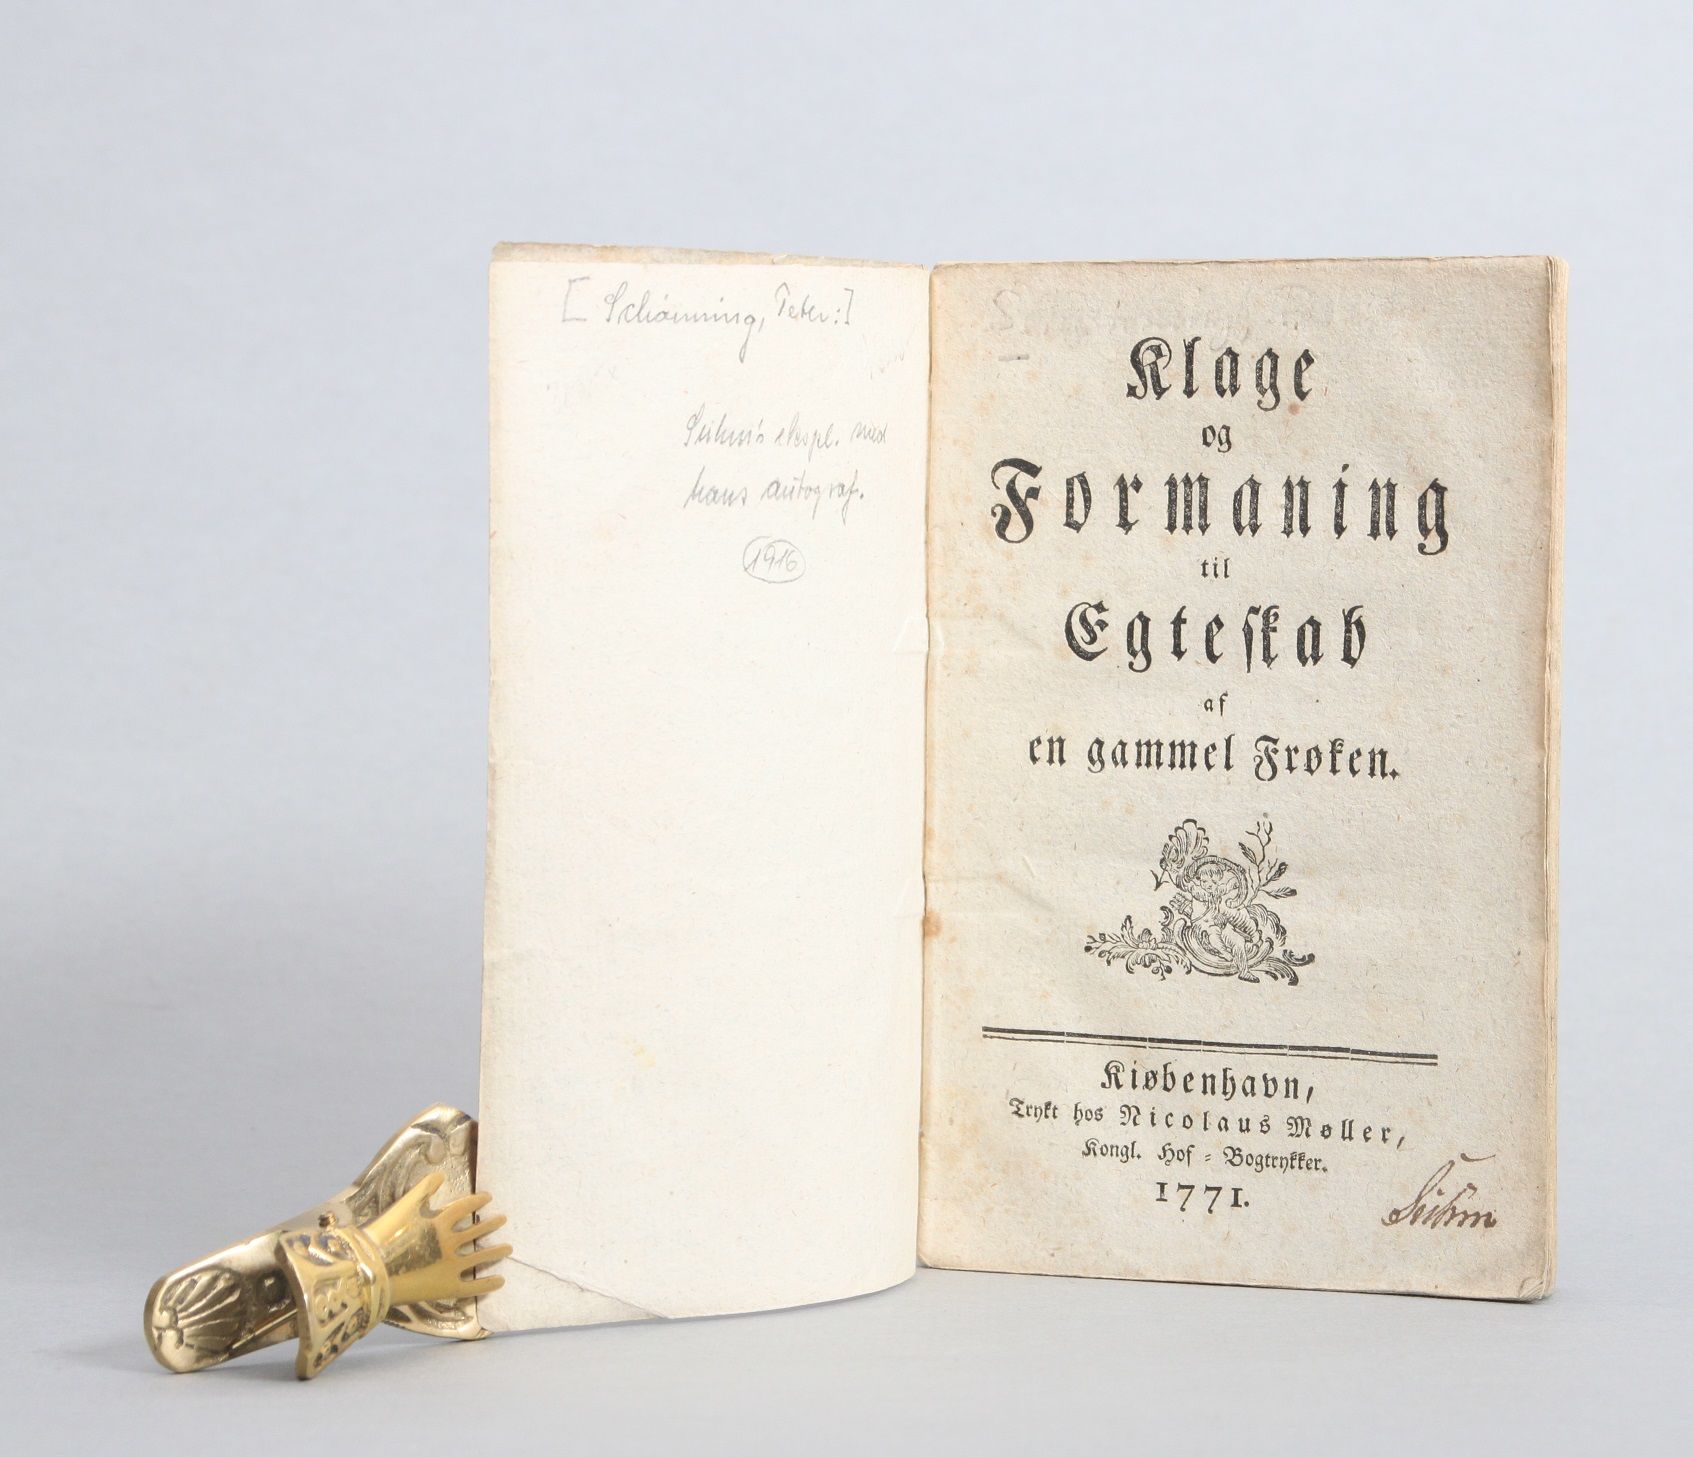 [Schiønning, Peter:]
Suhm's ekspl. med
hans autograf.
1916
Klage
og
Formaning
til
Egteskab
af
en gammel Frøken.
Kiøbenhavn,
Trykt hos Nicolaus Møller,
Kongl. Hof-Bogtrykker.
1771.
Suhm